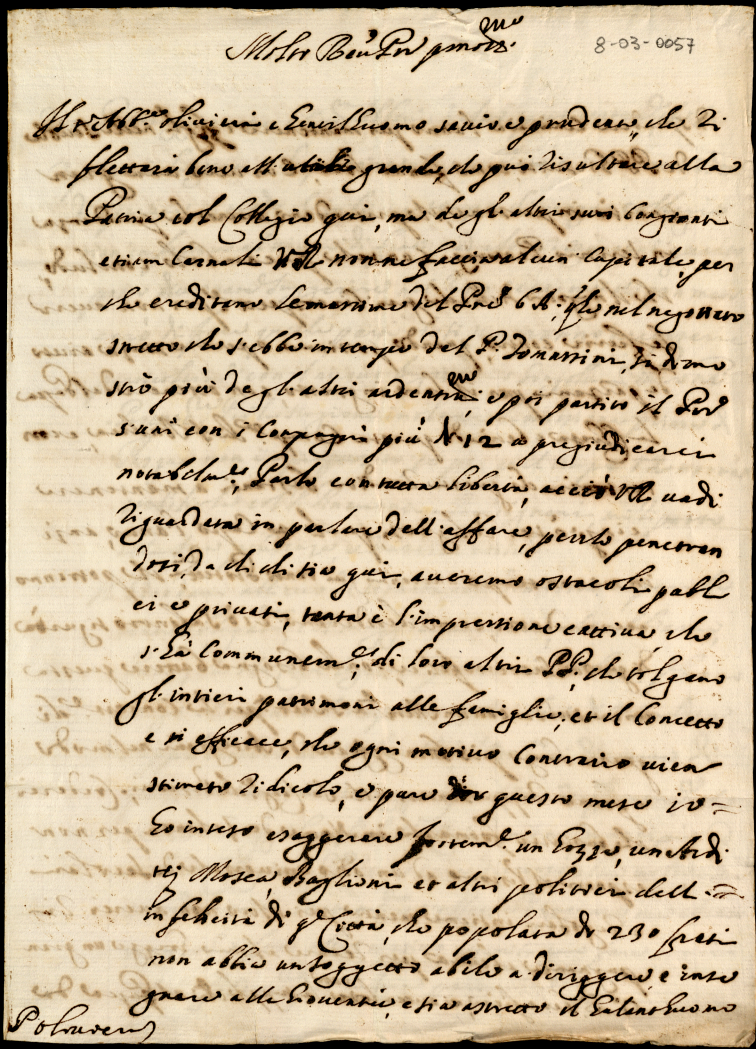 Molto Re͞u Pre͞ pron͞mo
8-03-0057
Il Sr Abbe. Olivieri e Gentilhuomo savio e prudente, che ri
fletterà bene all' utile grande, che può risultare alla
Patria col Collegio qui, ma de gl'altri suoi Congionti
etiam Carnali VR non ne faccia alcun Capitale, per
che ereditano le massime del Pre͞ 
nel negoziato
stretto che s'ebbe in tempo del P. Tomassini, si dimo
strò più de gl'altri ardentmo, e poi partito il Pre͞
s'unì con i Compagni più N 12 a pregiudicarci
notabelme. Parlo con tutta libertà, acciò VR vadi
riguardata in parlare dell'affare, perche penetran
dosi, da chi che sia qui, averemo ostacoli publi
ci e privati, tanta è l'impressione cattiva, che
s'hà Communeme: di loro altri PP, che tolgano
gl'intieri patrimoni alle famiglie, et il Concetto
e si efficace, che ogni motivo Contrario vien
stimato ridicolo, e pare questo mese io
hò inteso esaggerare forteme un Gozze, un Ardi
zij Mosca, Baglioni et altri politici dell'
infelicità di qa Città, che popolata di 230 frati
non abbia un soggetto abile a dirigger e inse
gnare alla Gioventù, e sia astretto il Galanthuomo